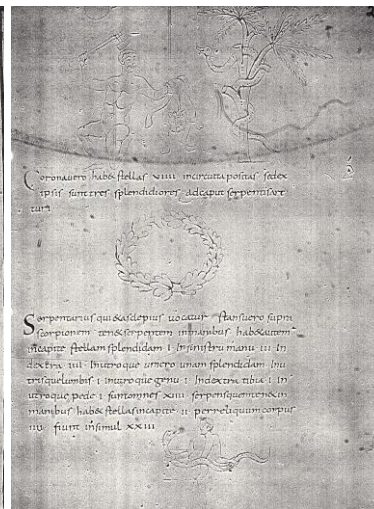 Coronauero hab& stellas VIIII incircuitu positas sedex
ipsis sunt tres splendidiores adcaput serpentis art
turi
Serpentarius qui &asclepius uocatur stansuero supra
scorpionem ten& serpentem inmanibus hab&autem
incapite stellam splendidam I Insinistra manu III In
dextra IIII Inutroque umero unam splendidam Inu
trisquelumbis I Inutroque genu I Indextra tibia I In
utroque pede I sunt omnes XIIII serpensquemten& in
manibus hab& stellas incapite II perreliquum corpus
fiunt insimul XXIII